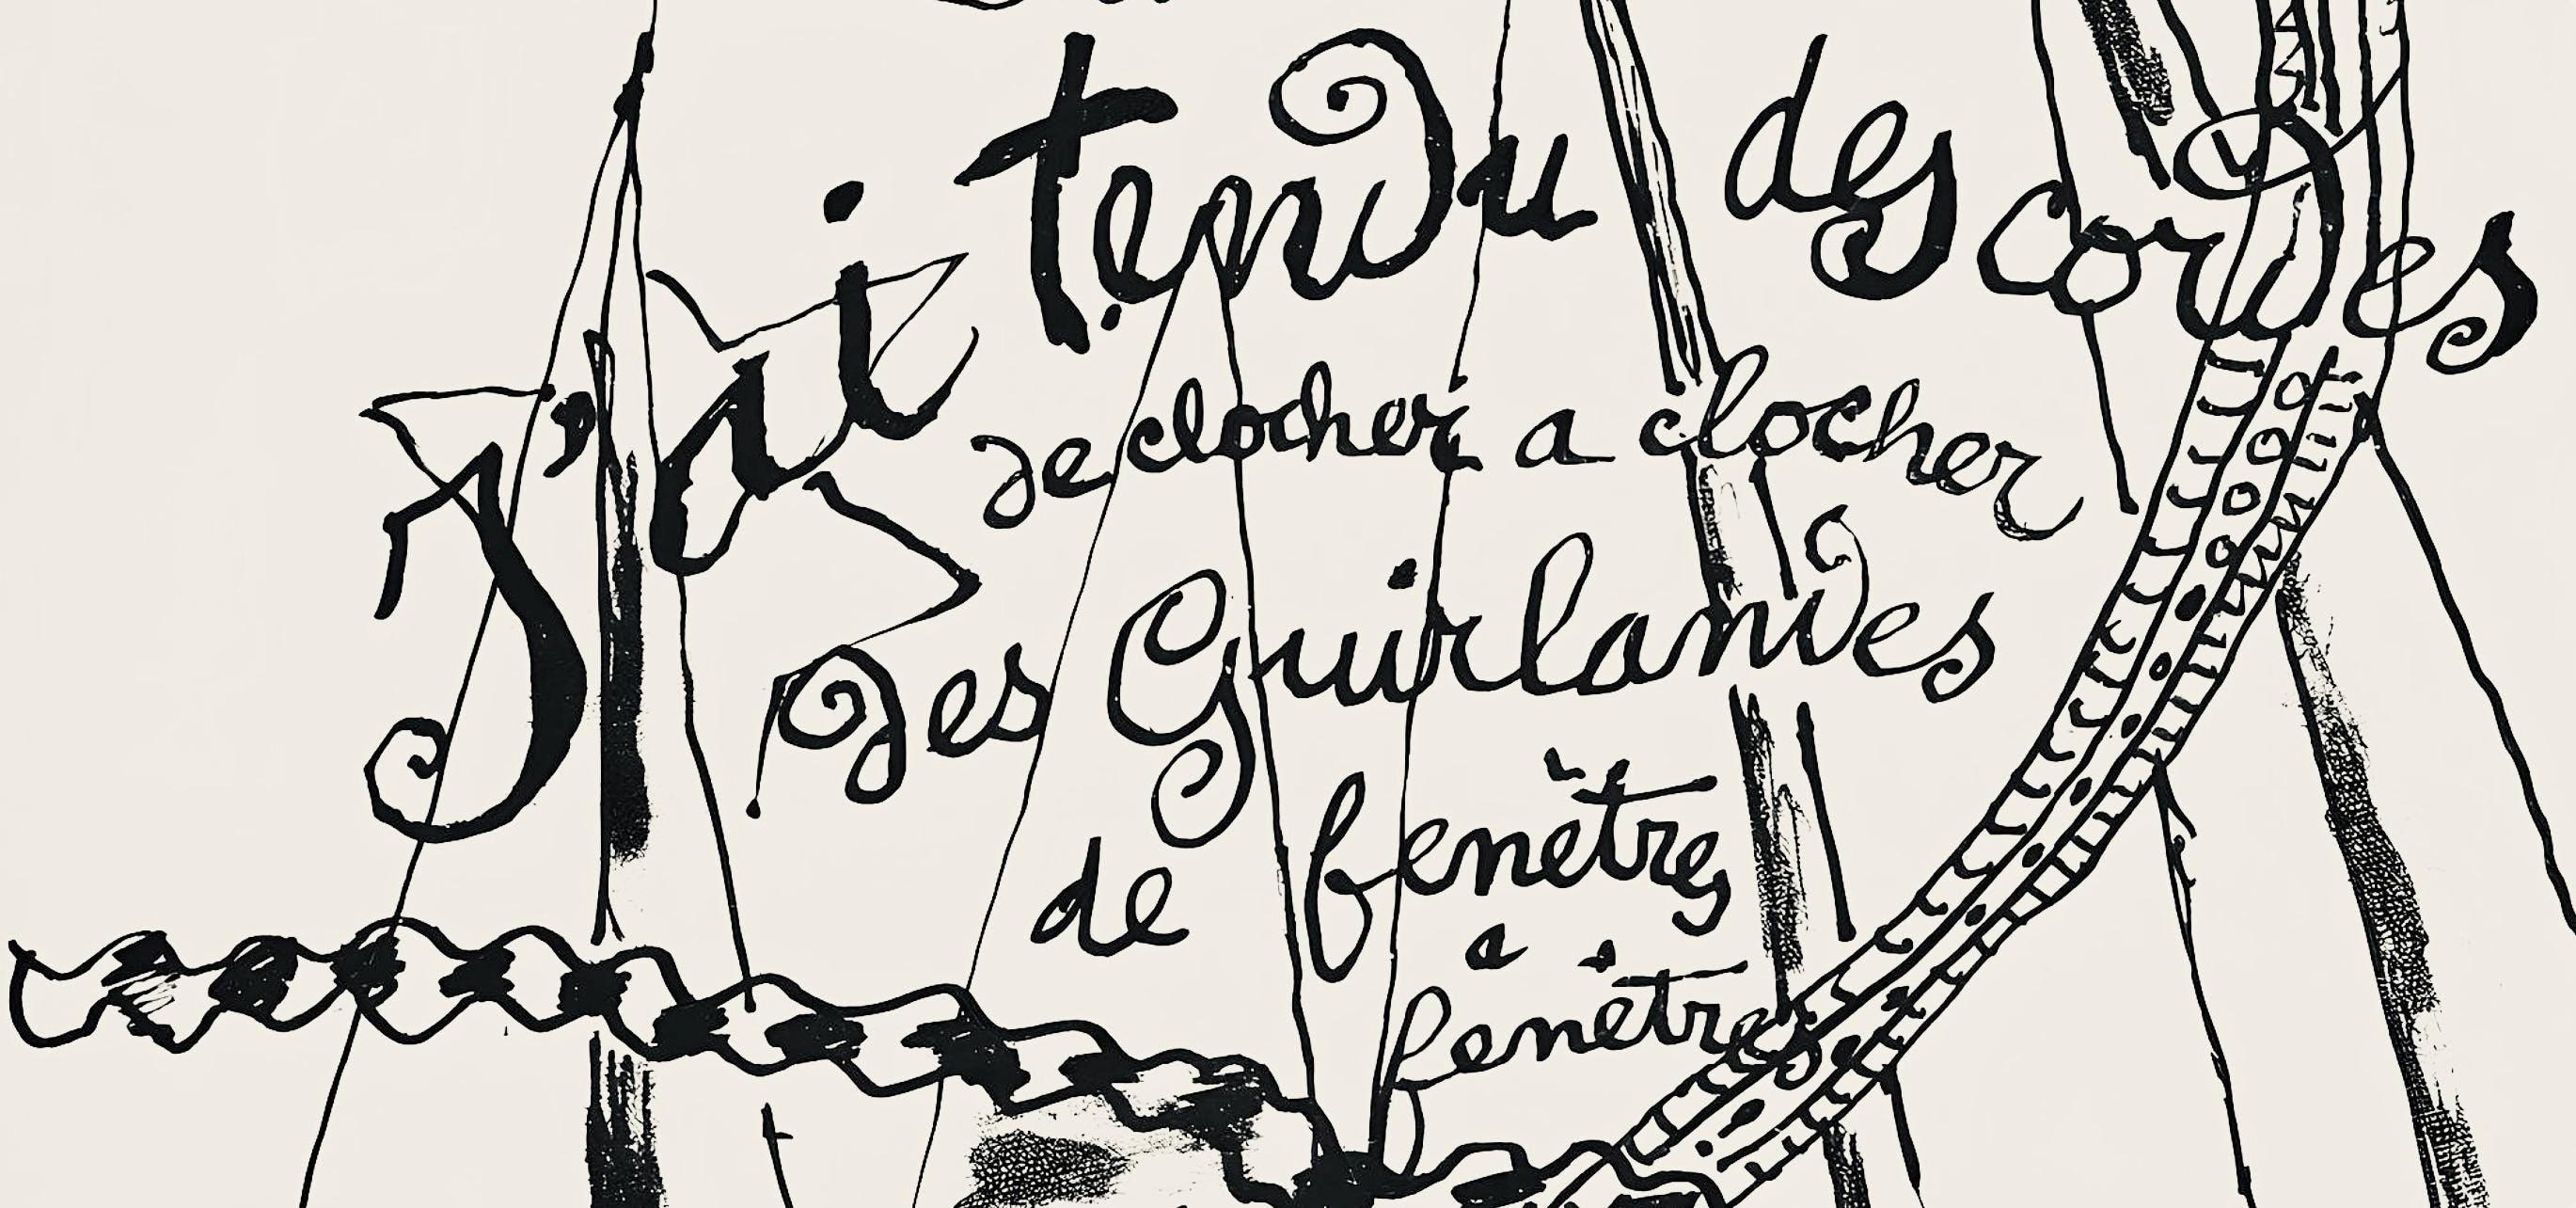 J'ai tendu des cordes
de clocher a clocher
des Guirlandes
de fenêtres
a
fenêtres